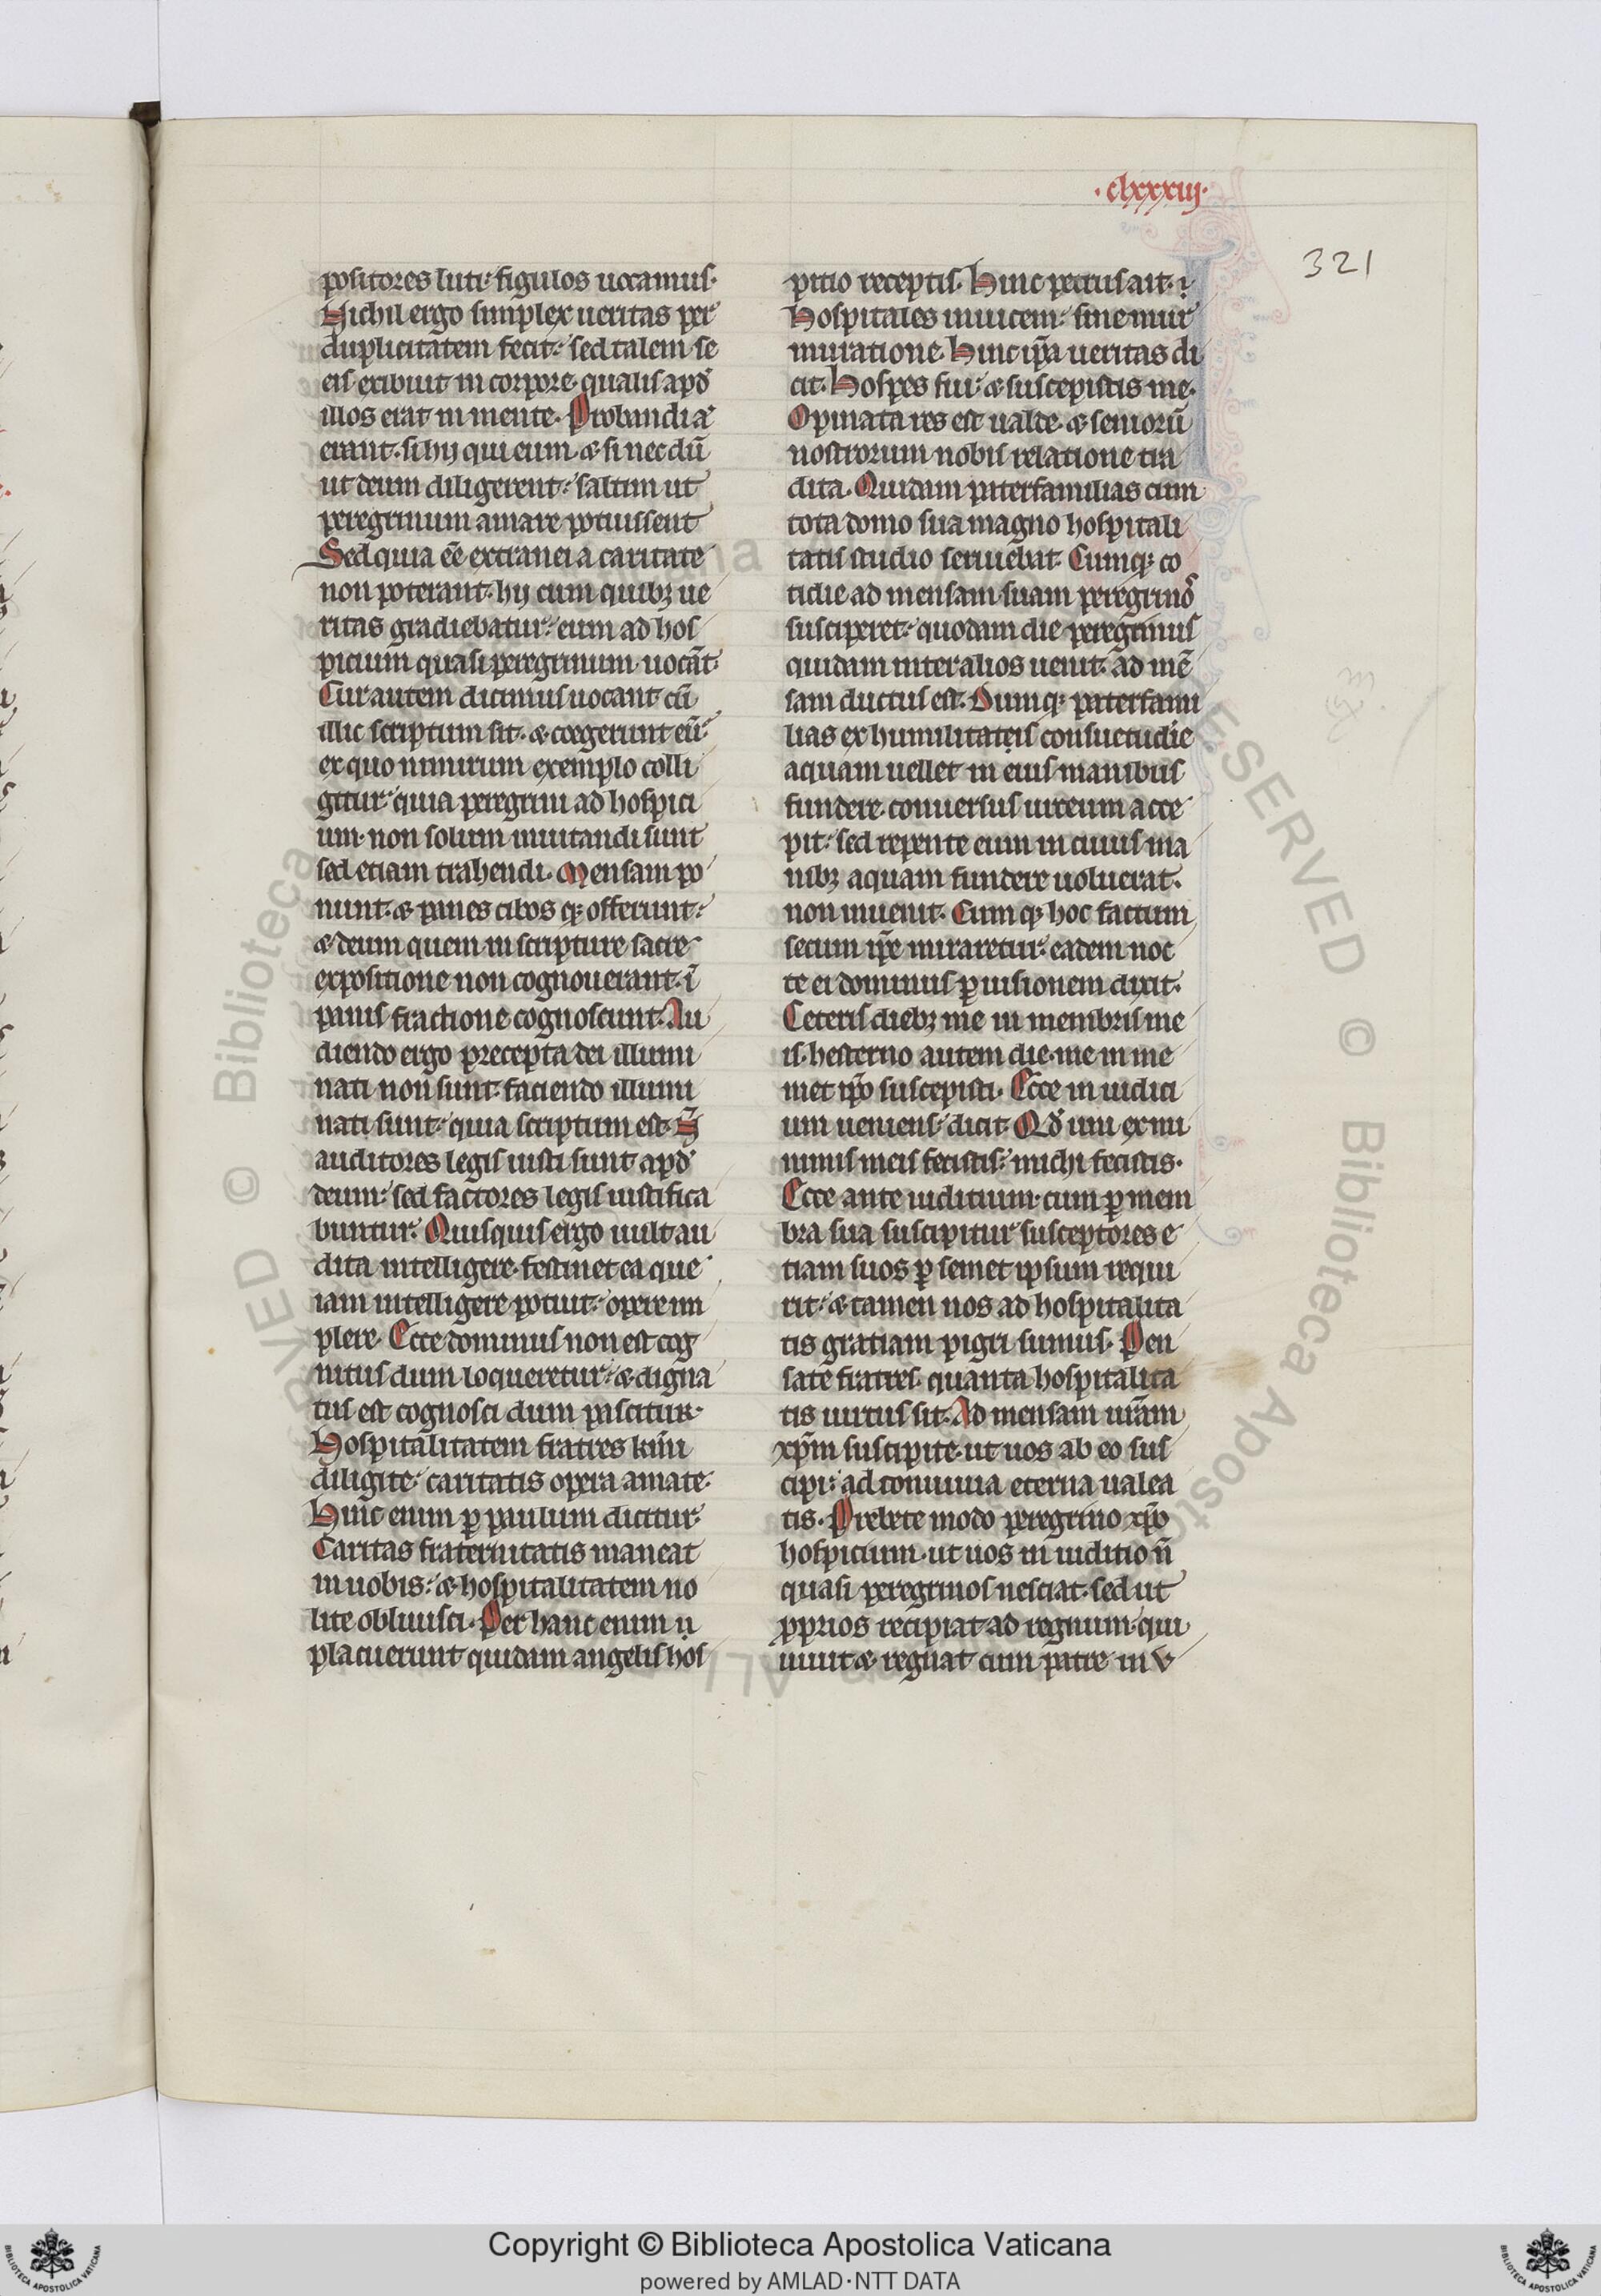 ·clxxxiij·
321
positores luti: figulos uocamus·
Nichil ergo simplex ueritas per
duplicitatem fecit: sed talem se
eis exibuit in corpore· qualis apđ
illos erat in mente· Probandi aͣ
erant· si hij qui eum ⁊ si nec dū
ut deum diligerent: saltim ut
peregrinum amare potuissent
Sed quia eē extranei a caritate
non poterant· hij cum quibꝫ ue
ritas gradiebatur: eum ad hos
picium quasi peregrinum uocāt·
Cur autem dicimus uocant cū
illic scriptum sit· ⁊ coegerunt eū·
ex quo nimirum exemplo colli
gitur quia peregrini ad hospici
um· non solum inuitandi sunt
sed etiam trahendi· Mensam po
nunt· ⁊ panes cibos qꝫ offerunt:
⁊ deum quem in scripture sacre
expositione non cognouerant· ī
panis fractione cognoscunt· Au
diendo ergo precepta dei illumi
nati non sunt· faciendo illumi
nati sunt: quia scriptum est· N̄
auditores legis iusti sunt apđ
deum: sed factores legis iustifica
buntur· Quisquis ergo uult au
dita intelligere· festinet ea que
iam intelligere potuit: opere im
plere· Ecce dominus non est cog
nitus dum loqueretur: ⁊ digna
tus est cognosci dum pascitur·
Hospitalitatem fratres kīmi
diligite· caritatis opera amate·
Hinc enim ꝑ paulum dicitur·
Caritas fraternitatis maneat
in uobis: ⁊ hospitalitatem no
lite obliuisci· Per hanc enim ij
placuerunt quidam angelis hos
pitio receptis· Hinc petrus ait· ⁊
Hospitales inuicem: sine mur
muratione· Hinc ip̄a ueritas di
cit· Hospes fui: ⁊ suscepistis me·
Opinata res est ualde· ⁊ seniorū
nostrorum nobis relatione tra
dita· Quidam paterfamilias cum
tota domo sua magno hospitali
tatis studio seruiebat· Cumqꝫ co
tidie ad mensam suam peregrinos
susciperet: quodam die peregrinus
quidam inter alios uenit· ad mē
sam ductus est· Dumqꝫ paterfami
lias ex humilitateis consuetudie
aquam uellet in eius manibus
fundere· conuersus urceum acce
pit: sed repente eum in cuius ma
nibꝫ aquam fundere uoluerat·
non inuenit· Cum qꝫ hoc factum
secum ip̄e miraretur: eadem noc
te ei dominus ꝑ uisionem dixit·
Ceteris diebꝫ me in membris me
is· hesterno autem die· me in me
met ip̄o suscepisti· Ecce in iudici
um ueniens: dicit· Qđ uni ex mi
nimis meis fecistis: michi fecistis·
Ecce ante iuditium· cum ꝑ mem
bra sua suscipitur susceptores e
tiam suos ꝑ semet ipsum requi
rit: ⁊ tamen nos ad hospitalita
tis gratiam pigri sumus· Pen
sate fratres· quanta hospitalita
tis uirtus sit· Ad mensam ur̄am
xp̄m suscipite· ut uos ab eo sus
cipi: ad conuiuia eterna ualea
tis· Prebete modo peregrino xp̄o
hospicium· ut uos in iuditio n̄
quasi peregrinos nesciat· sed ut
ꝓprios recipiat ad regnum· qui
uiuit ⁊ regnat cum patre in v
Copyright © Biblioteca Apostolica Vaticana
powered by AMLAD·NTT DATA